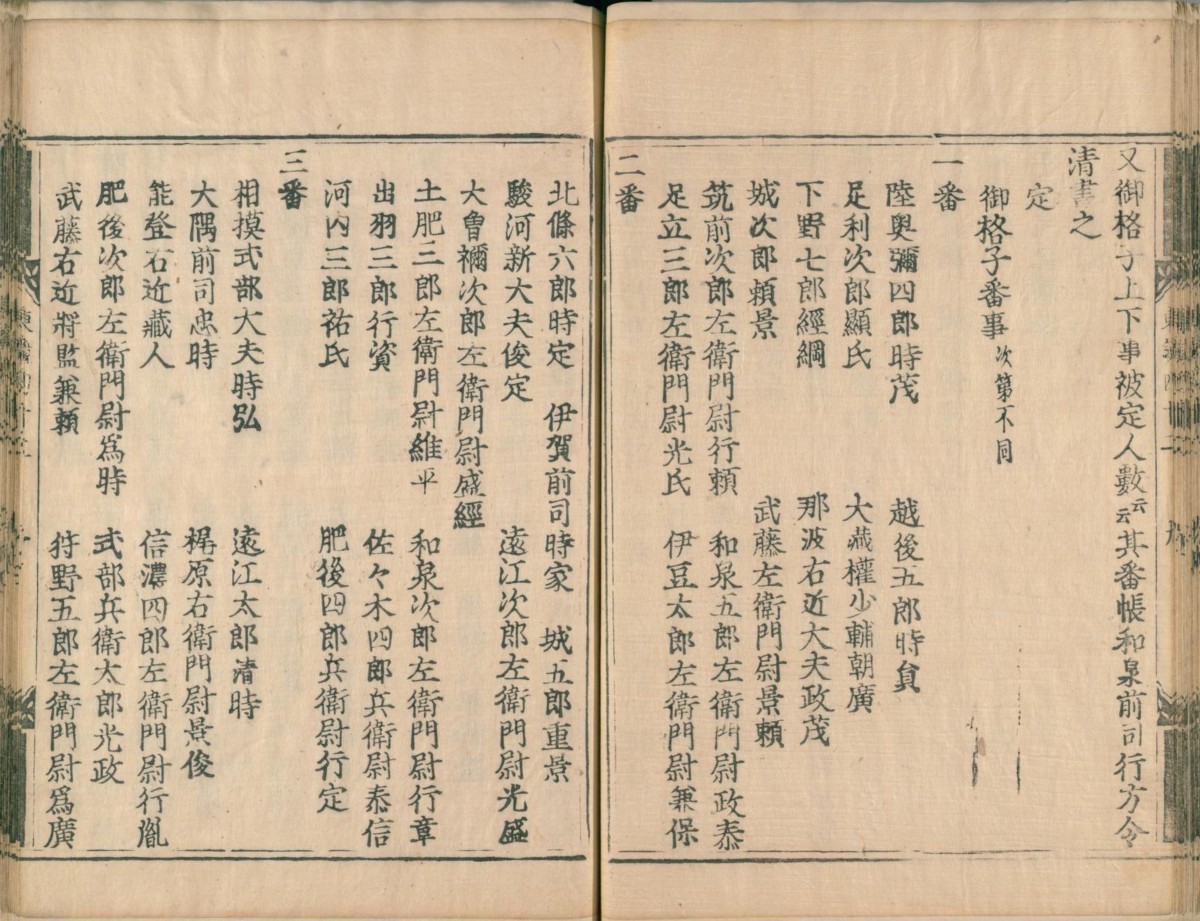 又御格子上下事被定人數云云其番帳和泉前司行方令
清書之
定
御格子番事次第不同
一番
陸奥彌四郎時茂 越後五郎時員
足利次郎顯氏 大藏權少輔朝廣
下野七郎經綱 那波右近大夫政茂
城次郎頼景 武藤左衛門尉景頼
筑前次郎左衛門尉行頼 和泉五郎左衛門尉政泰
足立三郎左衛門尉光氏 伊豆太郎左衛門尉兼保
二番
北條六郎時定 伊賀前司時家 城五郎重景
駿河新大夫俊定 遠江次郎左衛門尉光盛
大曾禰次郎左衛門尉盛經
土肥三郎左衛門尉維平 和泉次郎左衛門尉行章
出羽三郎行資 佐々木四郎兵衛尉泰信
河内三郎祐氏 肥後四郎兵衛尉行定
三番
相摸式部大夫時弘 遠江太郎清時
大隅前司忠時 梶原右衛門尉景俊
能登右近藏人 信濃四郎左衛門尉行胤
肥後次郎左衛門尉爲時 式部兵衛太郎光政
武藤右近將監兼頼 狩野五郎左衛門尉爲廣